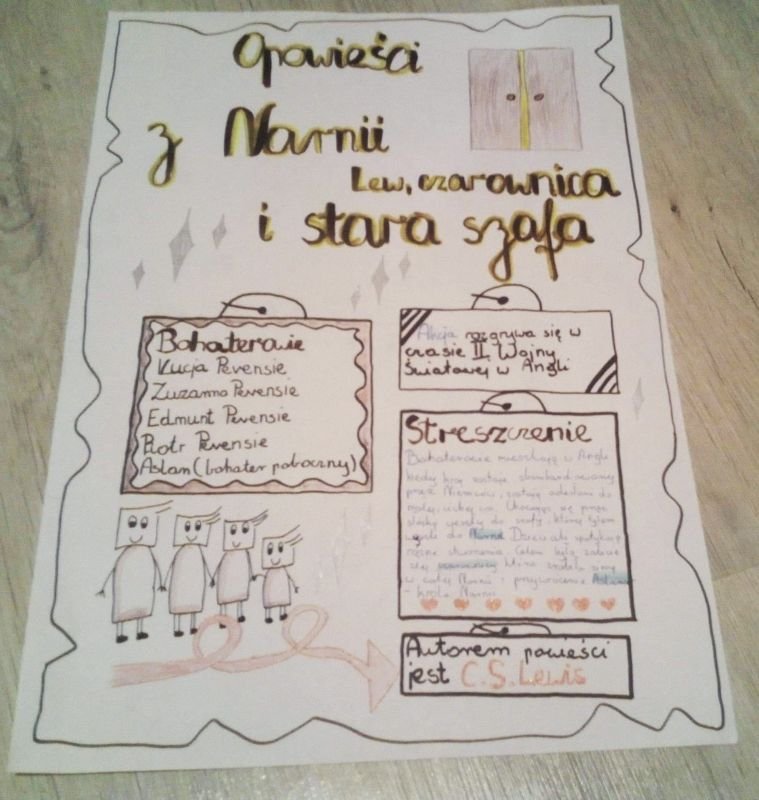 Opowieści
z Narnii
Lew, czarownica
i stara szafa
Bohaterowie
Łucja Pevensie
Zuzanna Pevensie
Edmunt Pevensie
Piotr Pevensie
Aslan (bohater poboczny)
Akcja rozgrywa się w
czasie II Wojny
Światowej w Angli
Streszczenie
Bohaterowie mieszkają w Angli
kiedy kraj zostaje zbombardowany
przez Niemców, zostają odesłani do
małej, cichej wsi. Chowając się przez
do szafy, którą tyłem
do Narnii Dzieciaki
różne stworzenia. Celem było zabicie
złej czarownicy która zimy
w całej Narnii i przywrócenie Aslana
- króla Narnii
Autorem powieści
jest C.S. Lewis